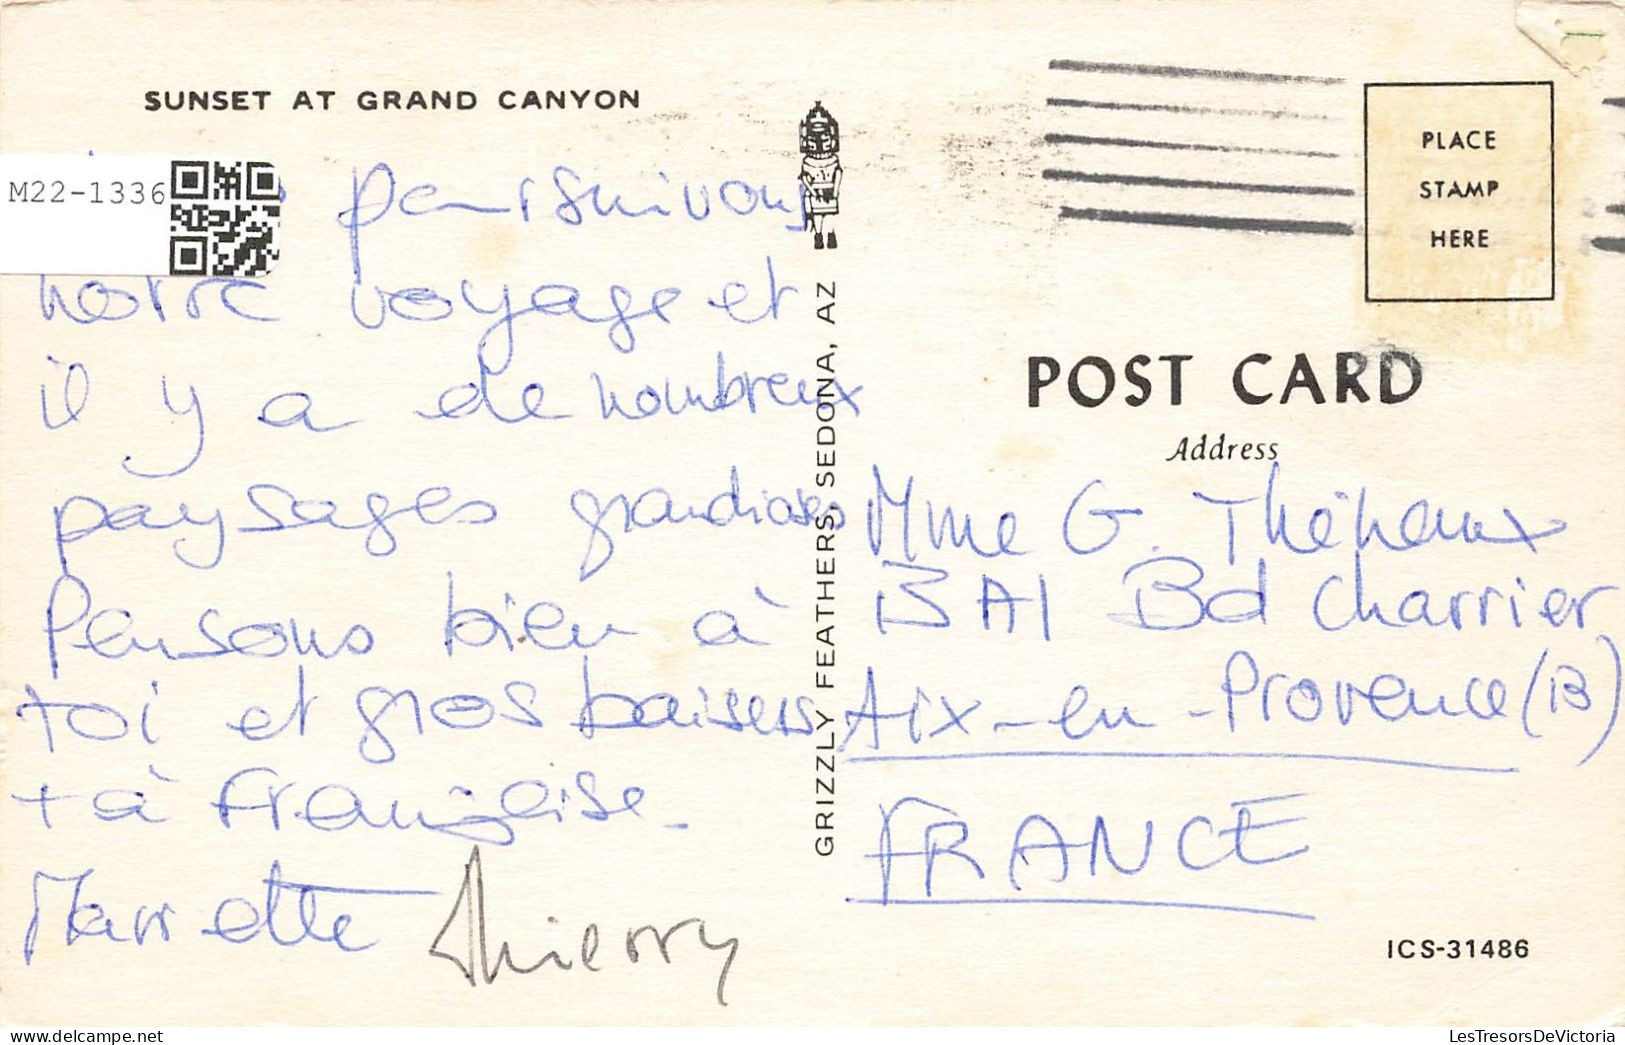 SUNSET AT GRAND CANYON
M22-1336
poursuivons
notre voyage et
il y a de nombreux
paysages grandioses
Pensons bien à
toi et gros baisers
+ à Françoise.
Mariette Thierry
GRIZZLY FEATHERS, SEDONA, AZ
PLACE
STAMP
HERE
POST CARD
Address
Mme G.
Bd Charrier
Aix-en-Provence (13)
FRANCE
ICS-31486
LesTresorsDeVictoria
delcampe.net